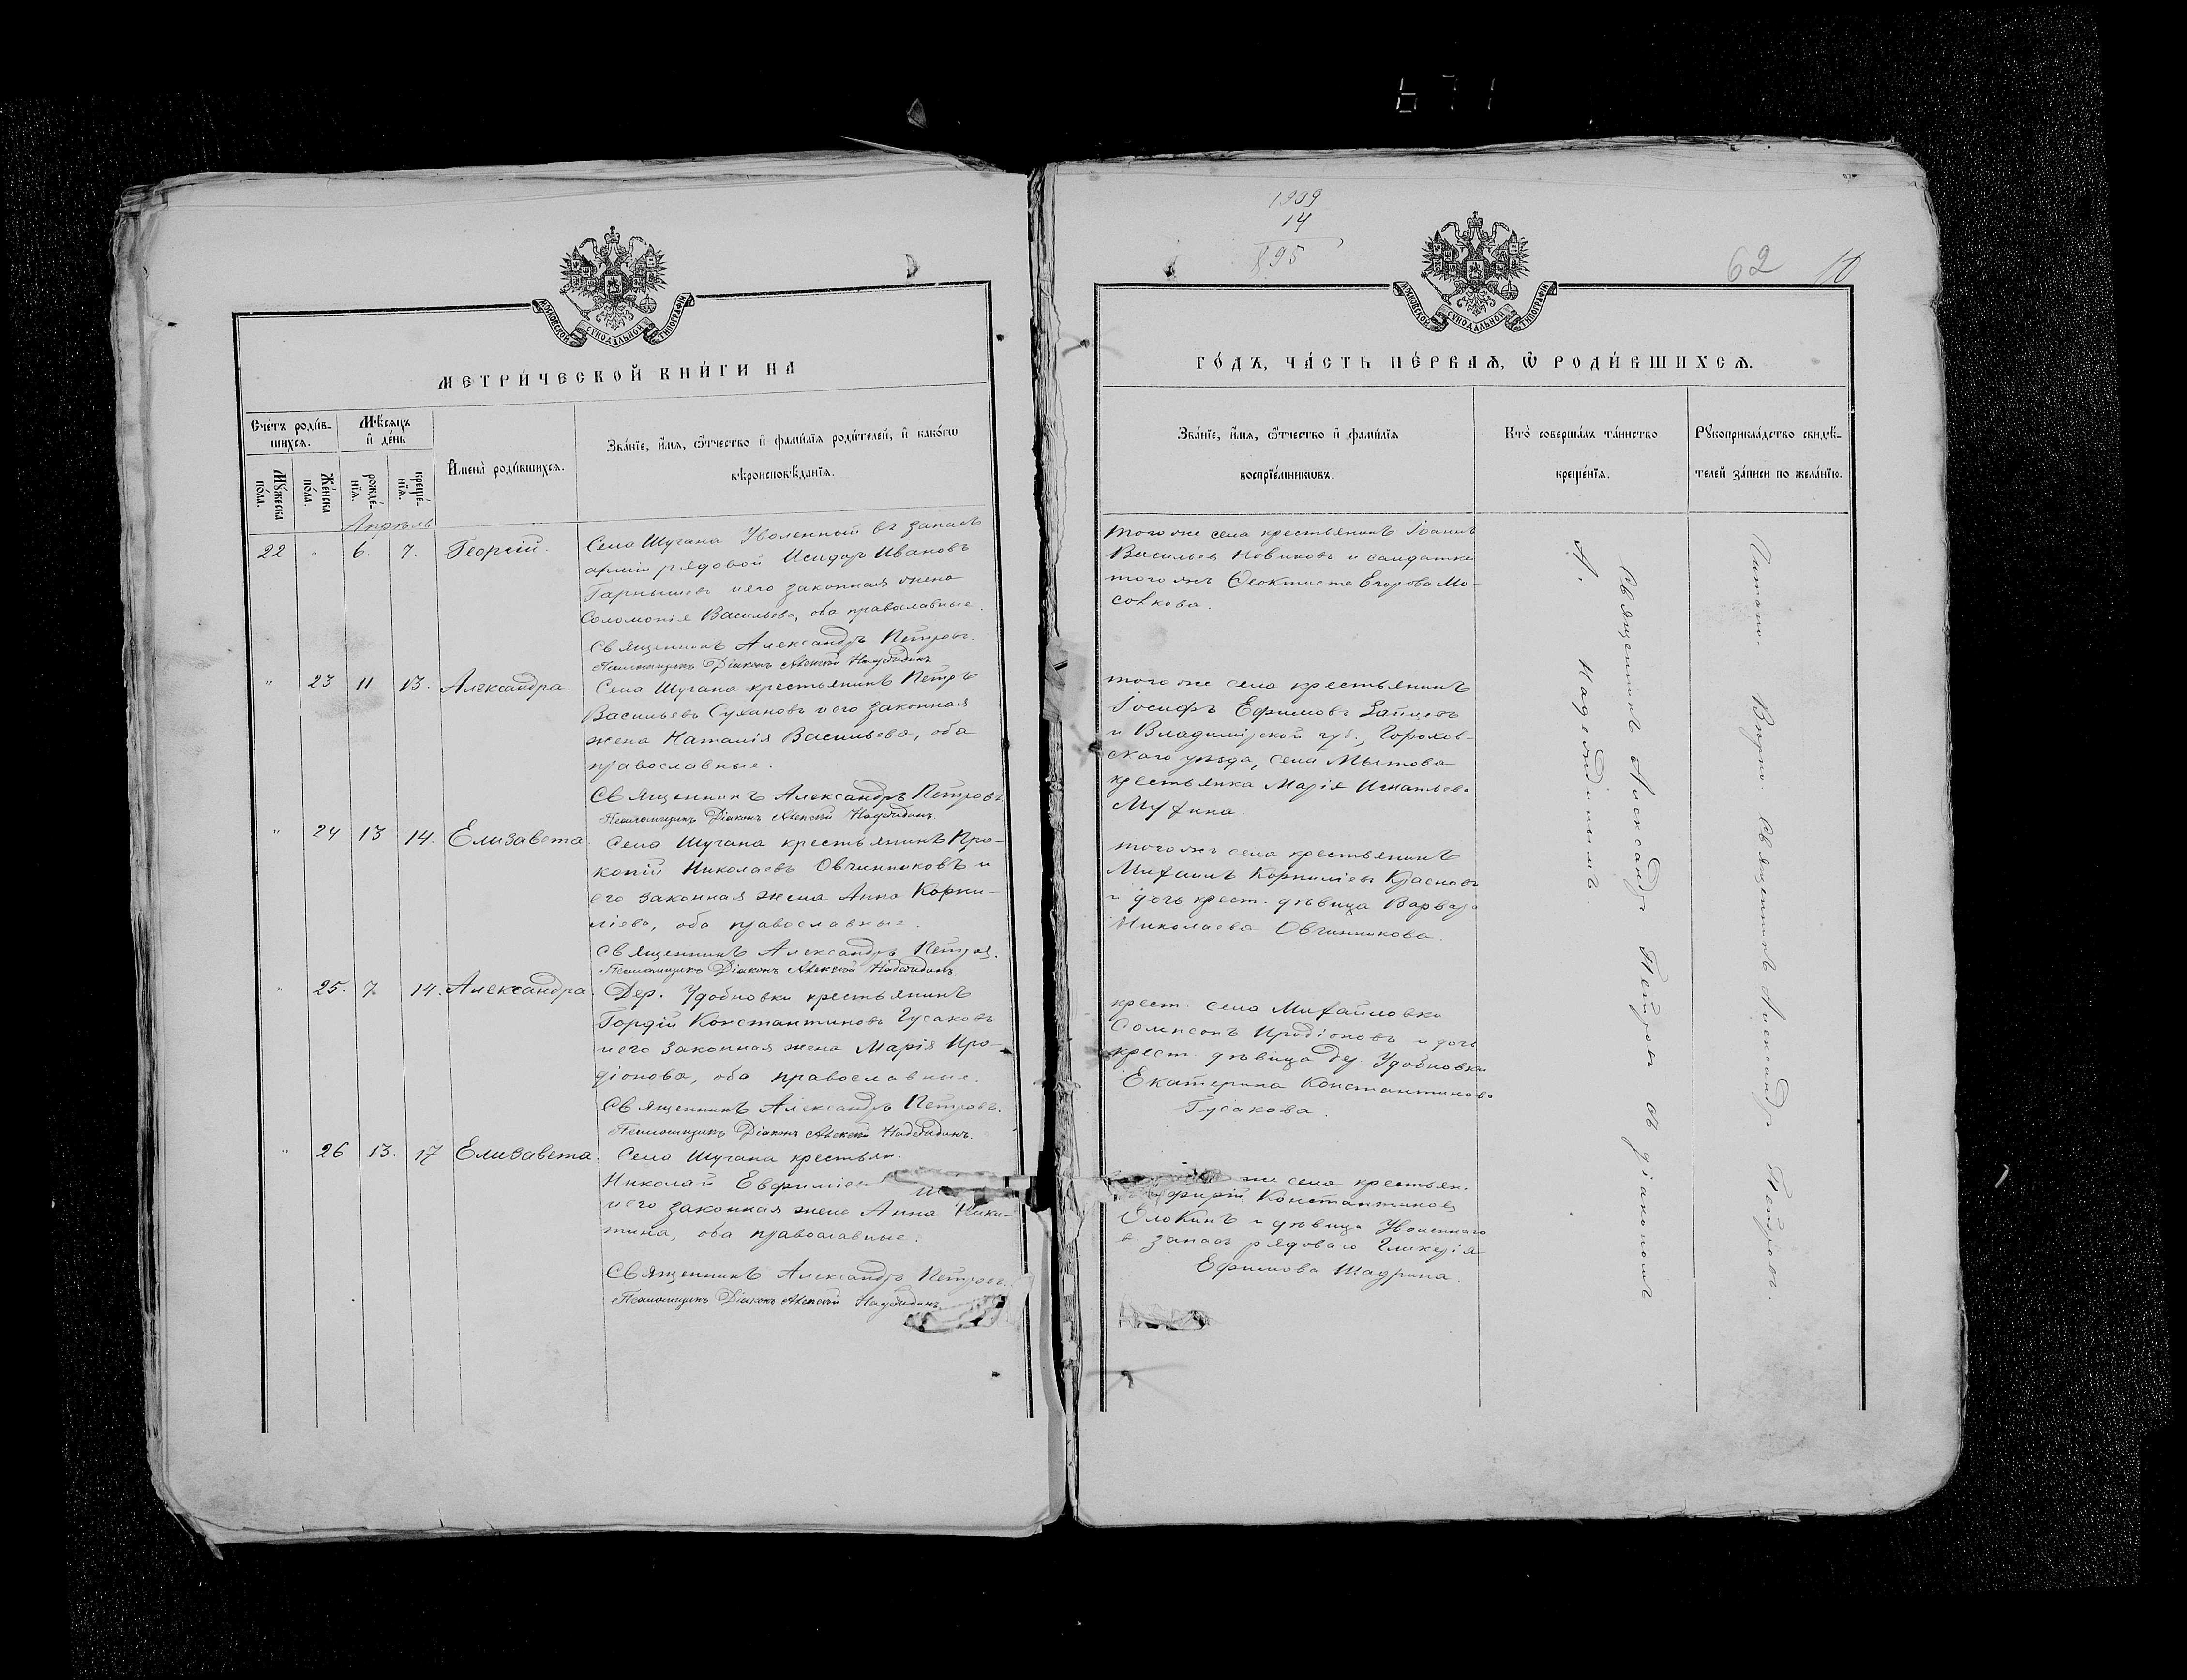 МОСКОВСКОЙ СѴНОДАЛЬНОЙ ТИПОГРАФІИ
МЕТРИ́ЧЕСКОЙ КНИ́ГИ НА
Сче́тъ роди́в-
шихсѧ.
Мѣ́сѧцъ
и҆ де́нь
Мꙋ́жеска
по́ла.
Же́нска
по́ла.
рожде́-
нїѧ.
креще́-
нїѧ.
И҆мена̀ роди́вшихсѧ.
Зва́нїе, и҆́мѧ, ѻ҆́тчество и҆ фами́лїѧ роди́телей, и҆ како́гѡ
вѣроисповѣ́данїѧ.
Апрѣль
22 " 6. 7. Георгій.
Села Шугана Уволенный въ запасъ
арміи рядовой Исидоръ Ивановъ
и его законная жена
Соломонія Васильева, оба православные.
Священникъ Александръ Петровъ.
Псаломщикъ Діаконъ Алексѣй Надеждинъ
" 23 11 13. Александра.
Села Шугана крестьянинъ Петръ
Васильевъ Сухановъ и его законная
жена Наталія Васильева, оба
православные.
Священникъ Александръ Петровъ
Псаломщикъ Діаконъ Алексѣй Надеждинъ.
" 24 13 14. Елизавета
Села Шугана крестьянинъ Про-
копій Николаевъ Овчинниковъ и
его законная жена Анна Корни-
ліева, оба православные.
Священникъ Александръ Петровъ.
Псаломщикъ Діаконъ Алексѣй Надеждинъ.
" 25. 7. 14. Александра.
Дер. Удобновки крестьянинъ
Гордій Константиновъ Гусаковъ
и его законная жена Марія Иро-
діонова, оба православные.
Священникъ Александръ Петровъ.
Псаломщикъ Діаконъ Алексѣй Надеждинъ.
" 26 13. 17 Елизавета.
Села Шугана крестьян.
Николай Евфиміевъ
и его законная жена Анна Ники-
тина, оба православные.
Священникъ Александръ Петровъ.
Псаломщикъ Діаконъ Алексѣй Надеждинъ
1909
14
895
62 10
МОСКОВСКОЙ СѴНОДАЛЬНОЙ ТИПОГРАФІИ
ГО́ДЪ, ЧА́СТЬ ПЕ́РВАѦ, Ѡ҆ РОДИ́ВШИХСѦ.
Зва́нїе, и҆́мѧ, ѻ҆́тчество и҆ фами́лїѧ
воспрїе́мникѡвъ.
Кто̀ соверша́лъ та́инство
креще́нїѧ.
Рꙋкоприкла́дство свидѣ́-
телей за́писи по жела́нїю.
того же села крестьянинъ Іоаннъ
Васильевъ Новиковъ и солдатка
того же Ѳеоктиста Егорова Мо-
солкова.
того же села крестьянинъ
Іосифъ Ефимовъ Зайцевъ
и Владимірской губ., Горохов-
скаго уѣзда, села Мытова
крестьянка Марія Игнатьева
Мухина.
того же села крестьянинъ
Михаилъ Корниліевъ Красновъ
и дочь крест. дѣвица Варвара
Николаева Овчинникова.
крест. села Михайловки
Сампсонъ Иродіоновъ и дочь
крест. дѣвица дер. Удобновки
Екатерина Константинова
Гусакова.
же села крестьян.
Константиновъ
и дѣвица Уволеннаго
въ запасъ рядоваго Гликерія
Ефимова Шадрина.
Священникъ Александръ Петровъ съ діакономъ
А. Надеждинымъ.
Читано. Вѣрно. Священникъ Александръ Петровъ.